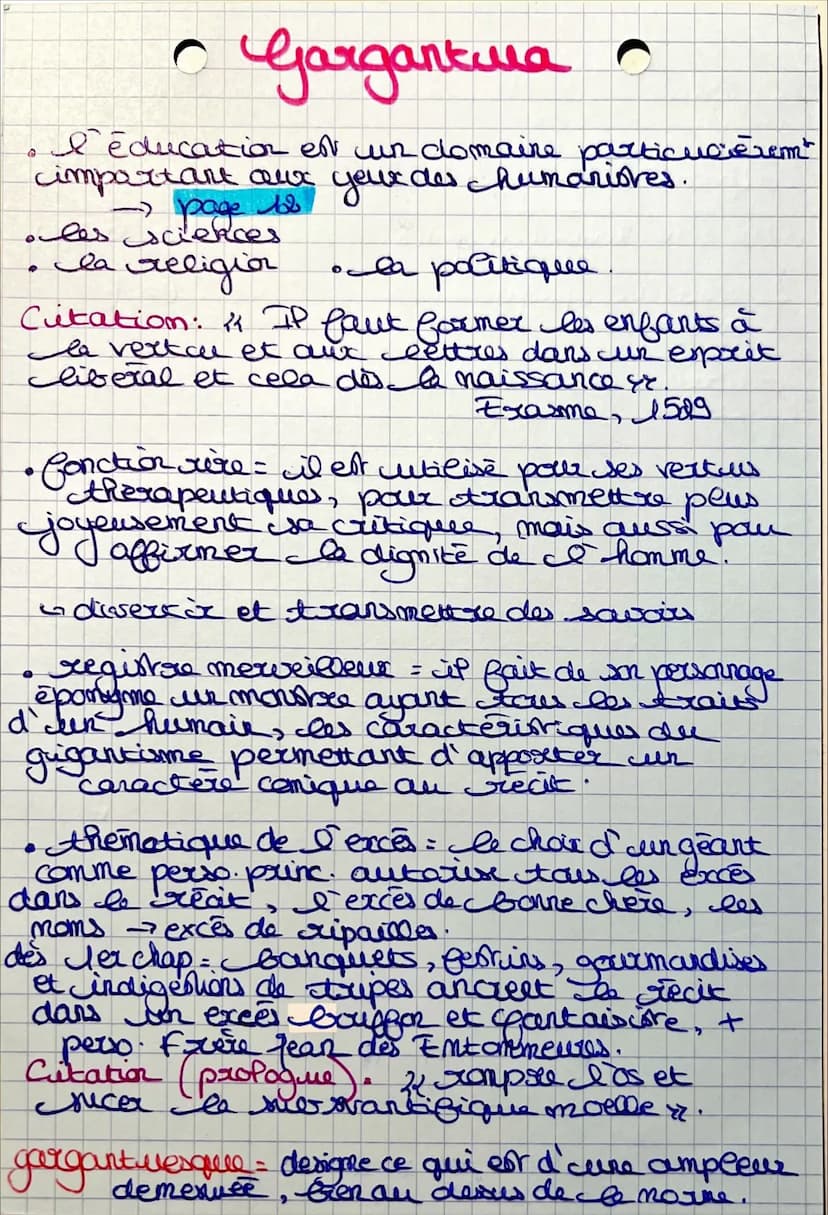 Gargantua
• l'éducation est un domaine particulièremt
important aux yeux des humanistes.
→ page 12
• les sciences
• la religion • la politique.
Citation: « Il faut former les enfants à
la vertu et aux lettres dans un esprit
libéral et cela dès la naissance ».
Erasme, 1529
• fonction rire = il est utilisé pour ses vertus
thérapeutiques, pour transmettre plus
joyeusement sa critique, mais aussi pour
affirmer la dignité de l'homme.
↳ divertir et transmettre des savoirs
• registre merveilleux = il fait de son personnage
éponyme un monstre ayant tous les traits
d'un humain, les caractéristiques du
gigantisme permettant d'apporter un
caractère comique au récit.
• thématique de l'excès = le choix d'un géant
comme perso. princ. autorise tous les excès
dans le récit, l'excès de bonne chère, les
noms → excès de ripailles.
dès 1er chap = banquets, festins, gourmandises
et indigestions de tripes ancrent le récit
dans un excès bouffon et fantaisiste, +
perso. Frère Jean des Entommeures.
Citation (prologue). « rompre l'os et
sucer la substantifique moelle ».
gargantuesque = designe ce qui est d'une ampleur
demesurée, bien au dessus de la norme.